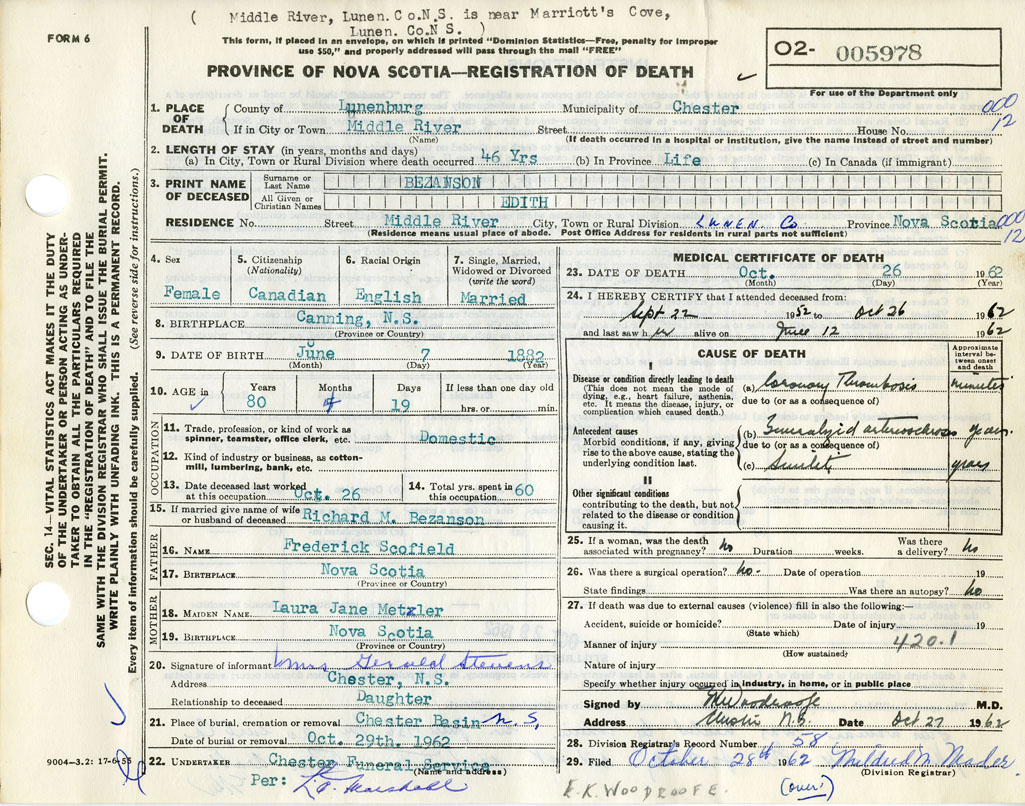 ( Middle River, Lunen. Co.N.S. is near Marriott's Cove,
Lunen. Co.N S. )
FORM 6
This form, if placed in an envelope, on which is printed "Dominion Statistics—Free, penalty for improper
use $50," and properly addressed will pass through the mail "FREE"
O2- 005978
For use of the Department only
PROVINCE OF NOVA SCOTIA—REGISTRATION OF DEATH
1. PLACE OF DEATH County of Lunenburg Municipality of Chester 000
If in City or Town Middle River Street House No. 12
(Name) (If death occurred in a hospital or institution, give the name instead of street and number)
2. LENGTH OF STAY (in years, months and days)
(a) In City, Town or Rural Division where death occurred 46 Yrs (b) In Province Life (c) In Canada (if immigrant)
3. PRINT NAME OF DECEASED Surname or Last Name BEZANSON
All Given or Christian Names EDITH
RESIDENCE No. Street Middle River City, Town or Rural Division LUNEN. Co Province Nova Scotia 000
(Residence means usual place of abode. Post Office Address for residents in rural parts not sufficient) 12
4. Sex Female
5. Citizenship (Nationality) Canadian
6. Racial Origin English
7. Single, Married, Widowed or Divorced (write the word) Married
8. BIRTHPLACE Canning, N.S.
(Province or Country)
9. DATE OF BIRTH June 7 1882
(Month) (Day) (Year)
10. AGE in Years 80 Months 4 Days 19 If less than one day old hrs. or min.
OCCUPATION
11. Trade, profession, or kind of work as spinner, teamster, office clerk, etc. Domestic
12. Kind of industry or business, as cotton-mill, lumbering, bank, etc.
13. Date deceased last worked at this occupation Oct. 26
14. Total yrs. spent in this occupation 60
15. If married give name of wife or husband of deceased Richard M. Bezanson
FATHER
16. NAME Frederick Scofield
17. BIRTHPLACE Nova Scotia
(Province or Country)
MOTHER
18. MAIDEN NAME Laura Jane Metzler
19. BIRTHPLACE Nova Scotia
(Province or Country)
20. Signature of informant Mrs Gerald Stevens
Address Chester, N.S.
Relationship to deceased Daughter
21. Place of burial, cremation or removal Chester Basin N.S,
Date of burial or removal Oct. 29th. 1962
22. UNDERTAKER Chester Funeral Service
(Name and address)
Per: Marshall
MEDICAL CERTIFICATE OF DEATH
23. DATE OF DEATH Oct. 26 1962
(Month) (Day) (Year)
24. I HEREBY CERTIFY that I attended deceased from:
Sept 22 1952 to Oct 26 1962
and last saw her alive on June 12 1962
CAUSE OF DEATH
Approximate interval between onset and death
I
Disease or condition directly leading to death
(This does not mean the mode of dying, e.g., heart failure, asthenia, etc. It means the disease, injury, or complication which caused death.)
(a) Coronary Thrombosis minutes
due to (or as a consequence of)
Antecedent causes
Morbid conditions, if any, giving rise to the above cause, stating the underlying condition last.
(b) Generalyzid arteriosclerosis years
due to (or as a consequence of)
(c) Senility years
II
Other significant conditions
contributing to the death, but not related to the disease or condition causing it.
25. If a woman, was the death associated with pregnancy? No Duration weeks. Was there a delivery? No
26. Was there a surgical operation? No- Date of operation 19
State findings Was there an autopsy? No
27. If death was due to external causes (violence) fill in also the following:—
Accident, suicide or homicide? Date of injury 19
(State which)
Manner of injury 420.1
(How sustained)
Nature of injury
Specify whether injury occurred in industry, in home, or in public place
Signed by Woodroofe M.D.
Address N.S. Date Oct 27 1962
28. Division Registrar's Record Number 58
29. Filed October 28th 1962 Mildred M. Mader
(Division Registrar)
E.K. WOODROOFE.
(over)
SEC. 14—VITAL STATISTICS ACT MAKES IT THE DUTY
OF THE UNDERTAKER OR PERSON ACTING AS UNDER-
TAKER TO OBTAIN ALL THE PARTICULARS REQUIRED
IN THE "REGISTRATION OF DEATH" AND TO FILE THE
SAME WITH THE DIVISION REGISTRAR WHO SHALL ISSUE THE BURIAL PERMIT.
WRITE PLAINLY WITH UNFADING INK. THIS IS A PERMANENT RECORD.
Every item of information should be carefully supplied. (See reverse side for instructions.)
9004—3.2: 17-6-55